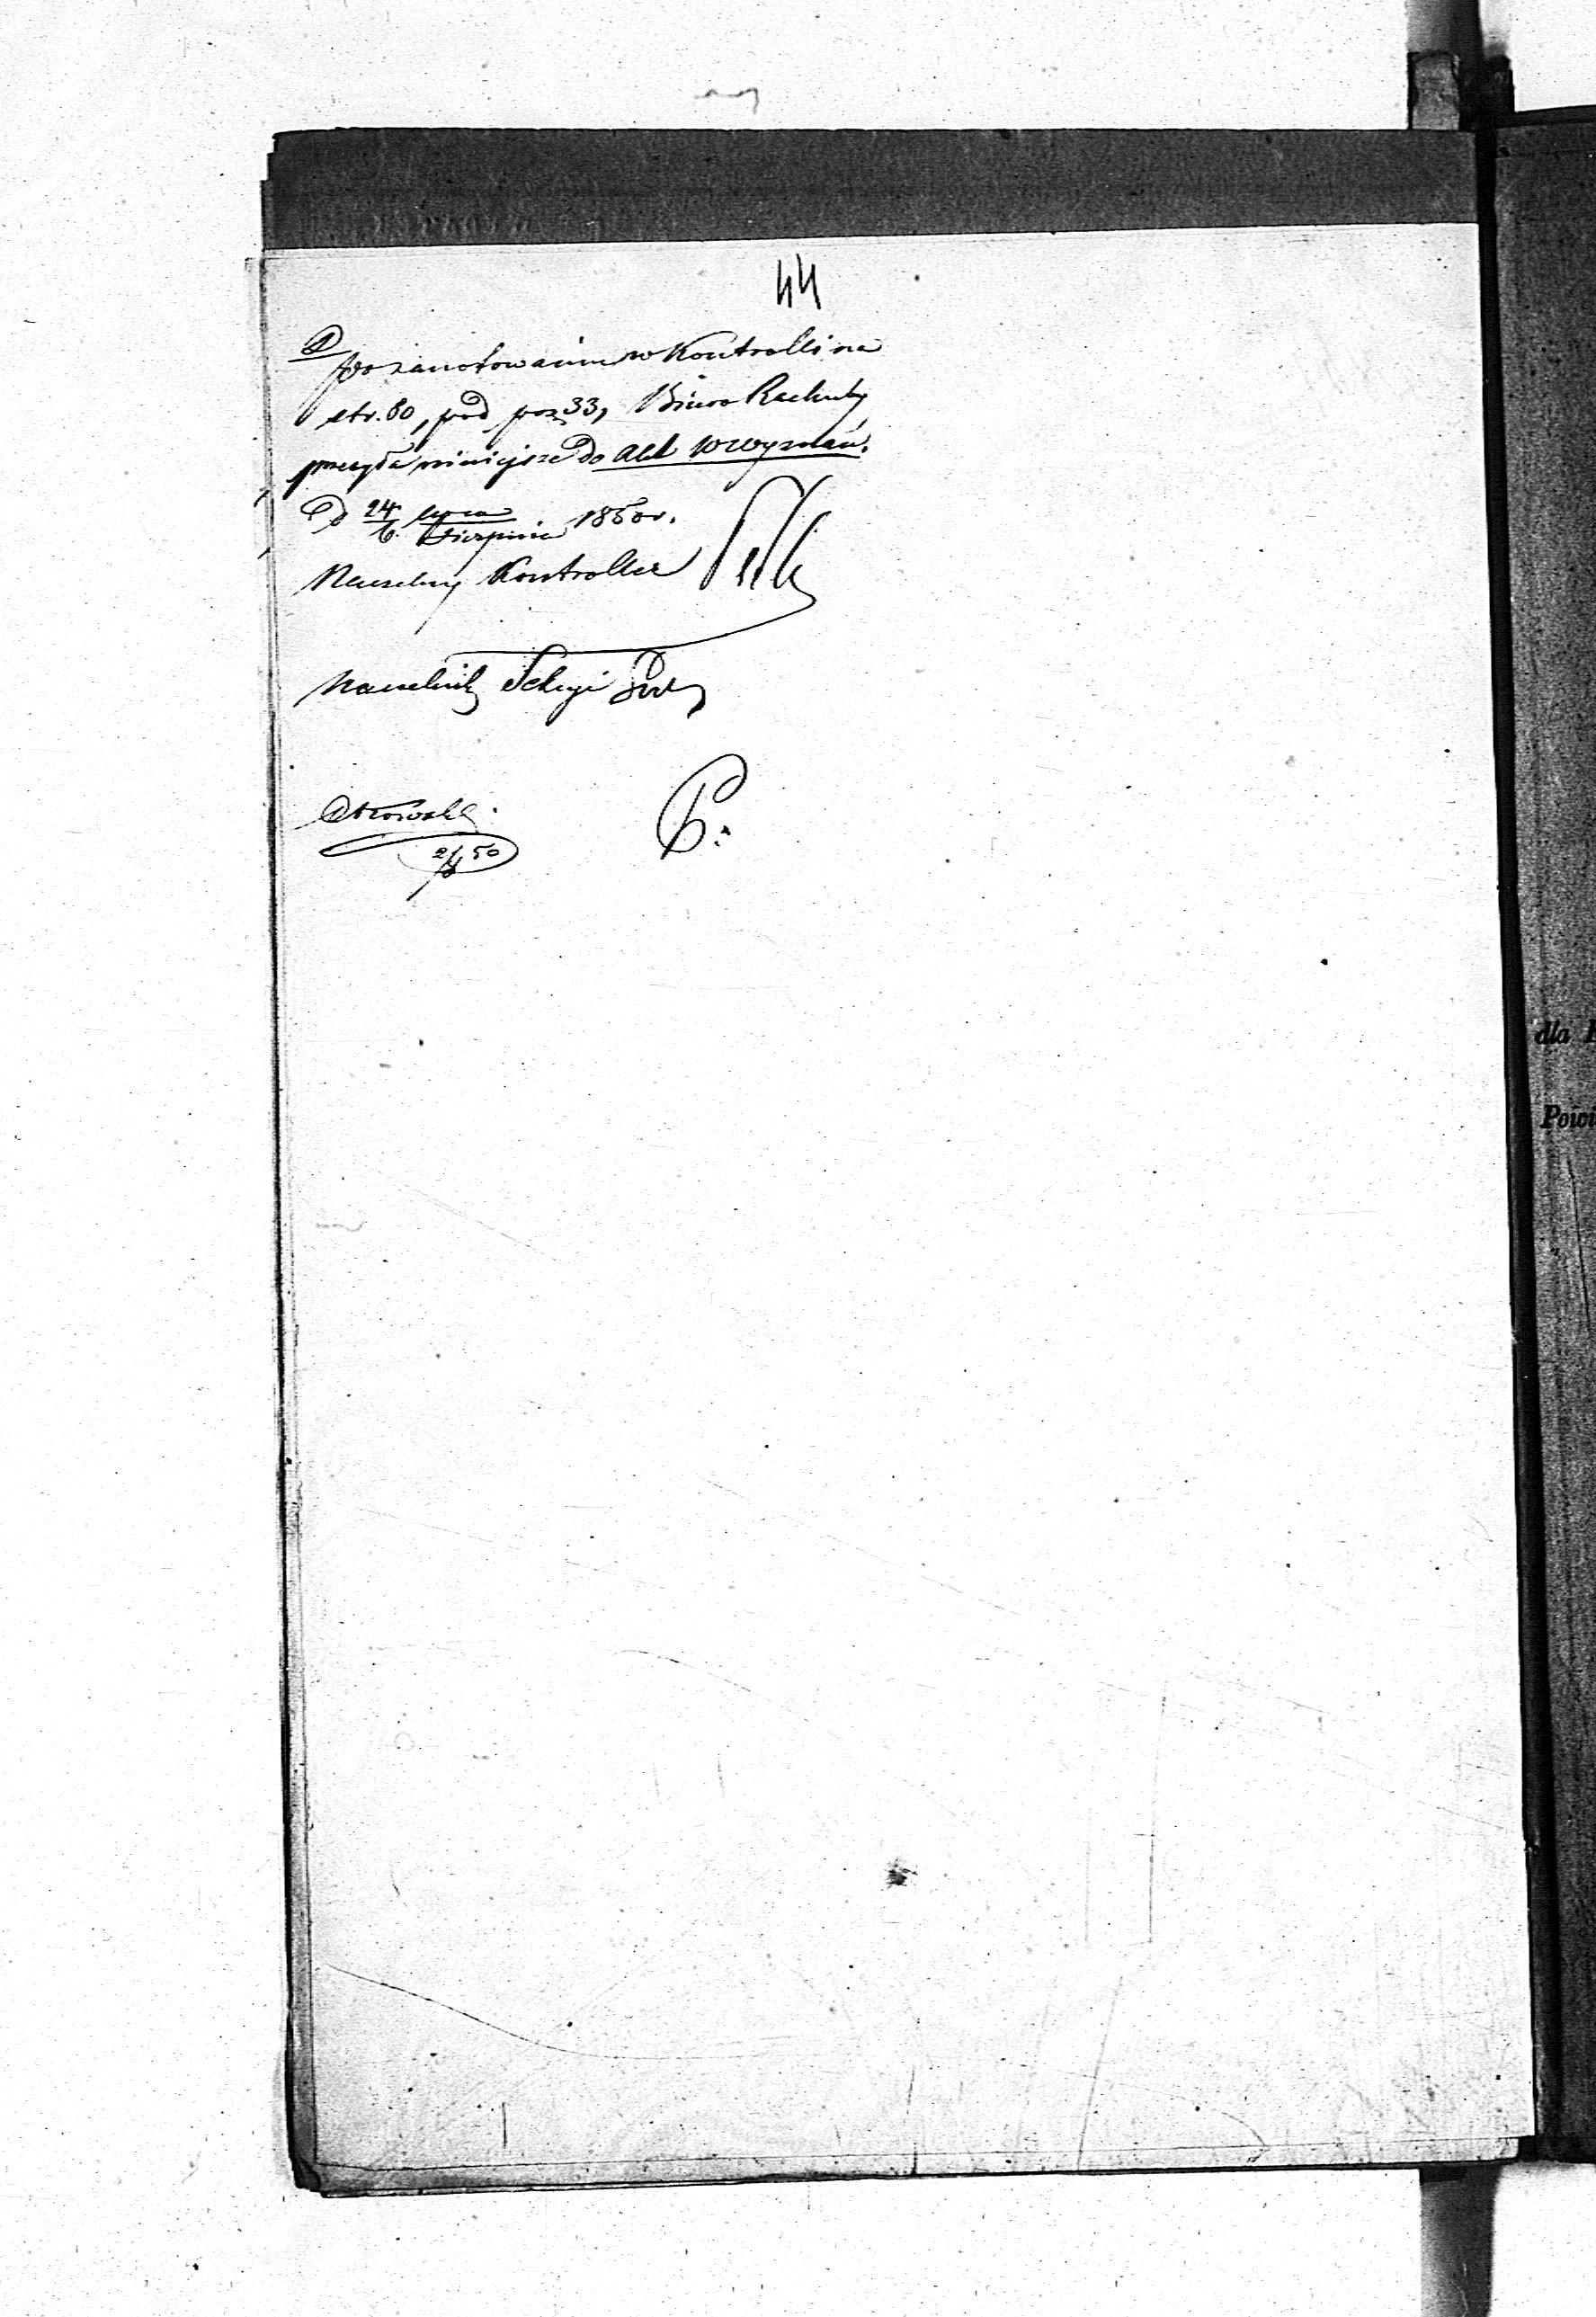 44
po zanotowaniu w Kontrolli na
str. 80, pod poz 33, Biuro Rachuby
przesyła niniejsze do Akt W Wyznań.
D 24/6 Lipca/Sierpnia 1850 r.
Naczelny Kontroller
Naczelnik Sekcyi
2/8 50
dla
Powi